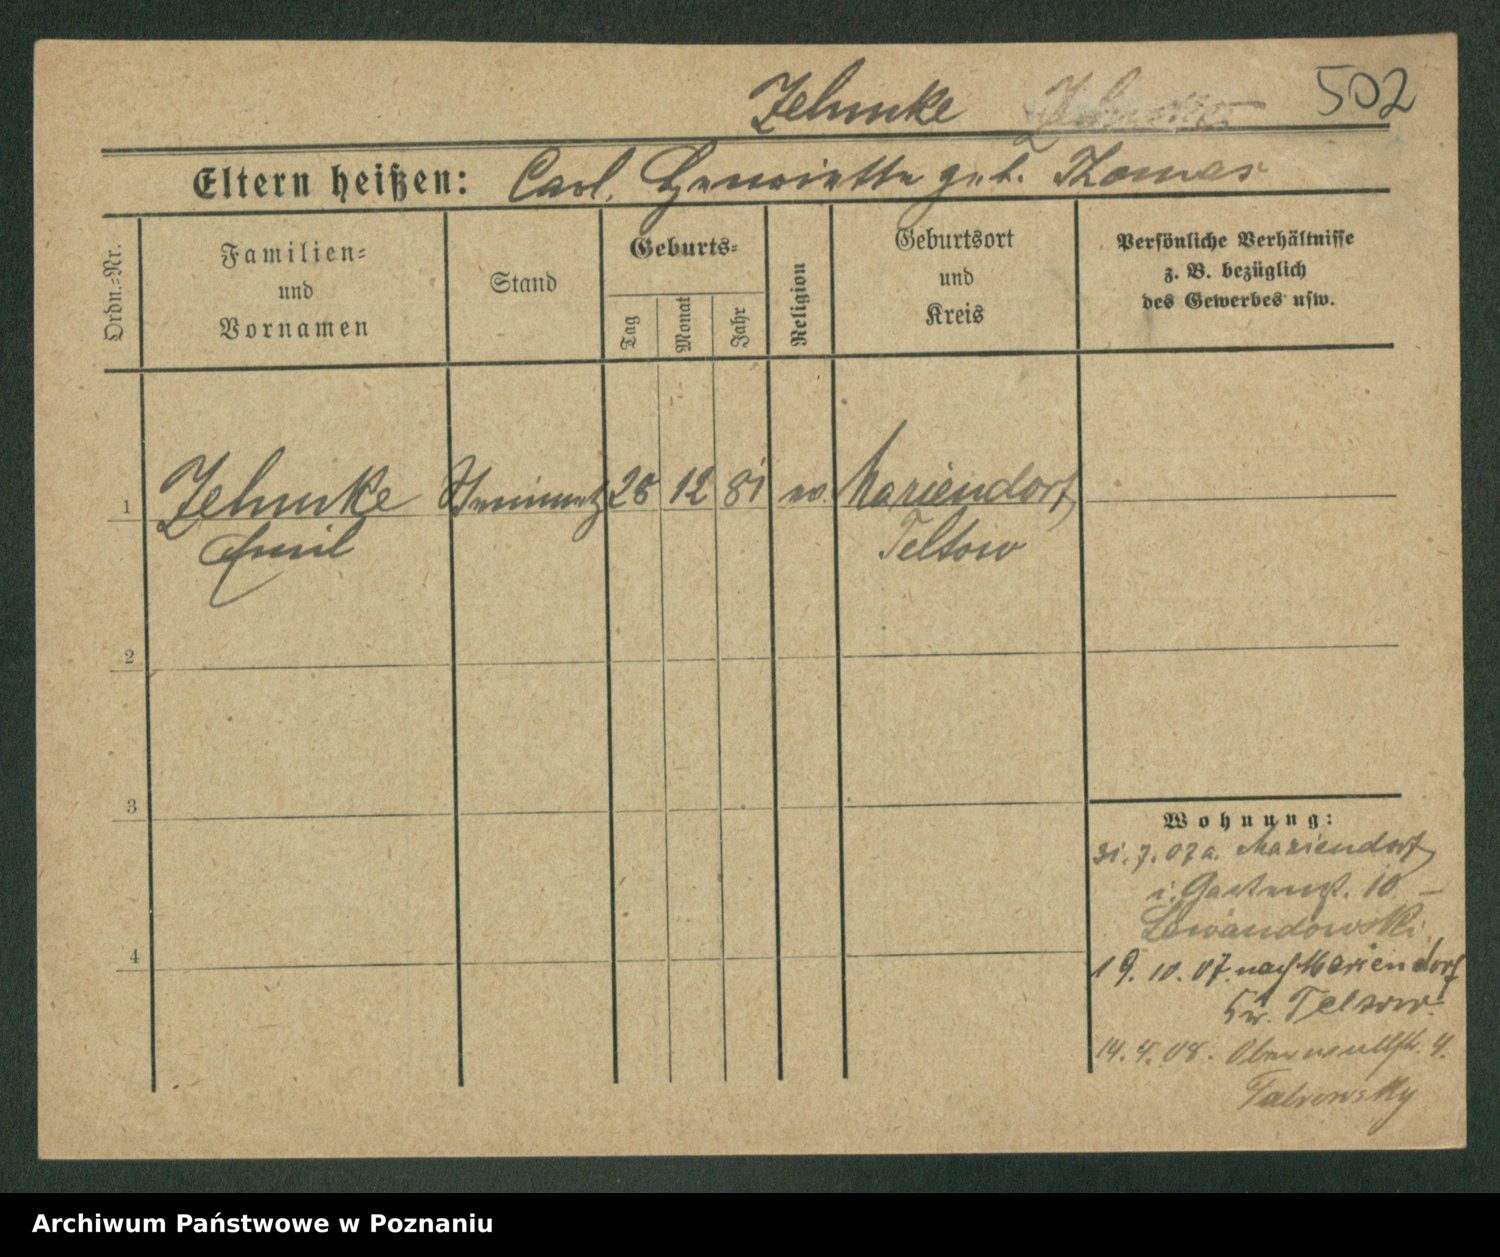 Zehmke 502
Eltern heißen: Carl, Henriette geb. Thomas
Ordn.=Nr.
Familien=
und
Vornamen
Stand
Geburts=
Tag
Monat
Jahr
Religion
Geburtsort
und
Kreis
Persönliche Verhältnisse
z. B. bezüglich
des Gewerbes usw.
1 Zehmke Steinmetz 28 12 81 ev. Mariendorf
Emil Teltow
2
3
4
Wohnung:
31.7.07 a. Mariendorf
i. Gartenst. 10 –
Lewandowski
19.10.07. nach Mariendorf
Kr. Teltow.
14.4.08. 4.